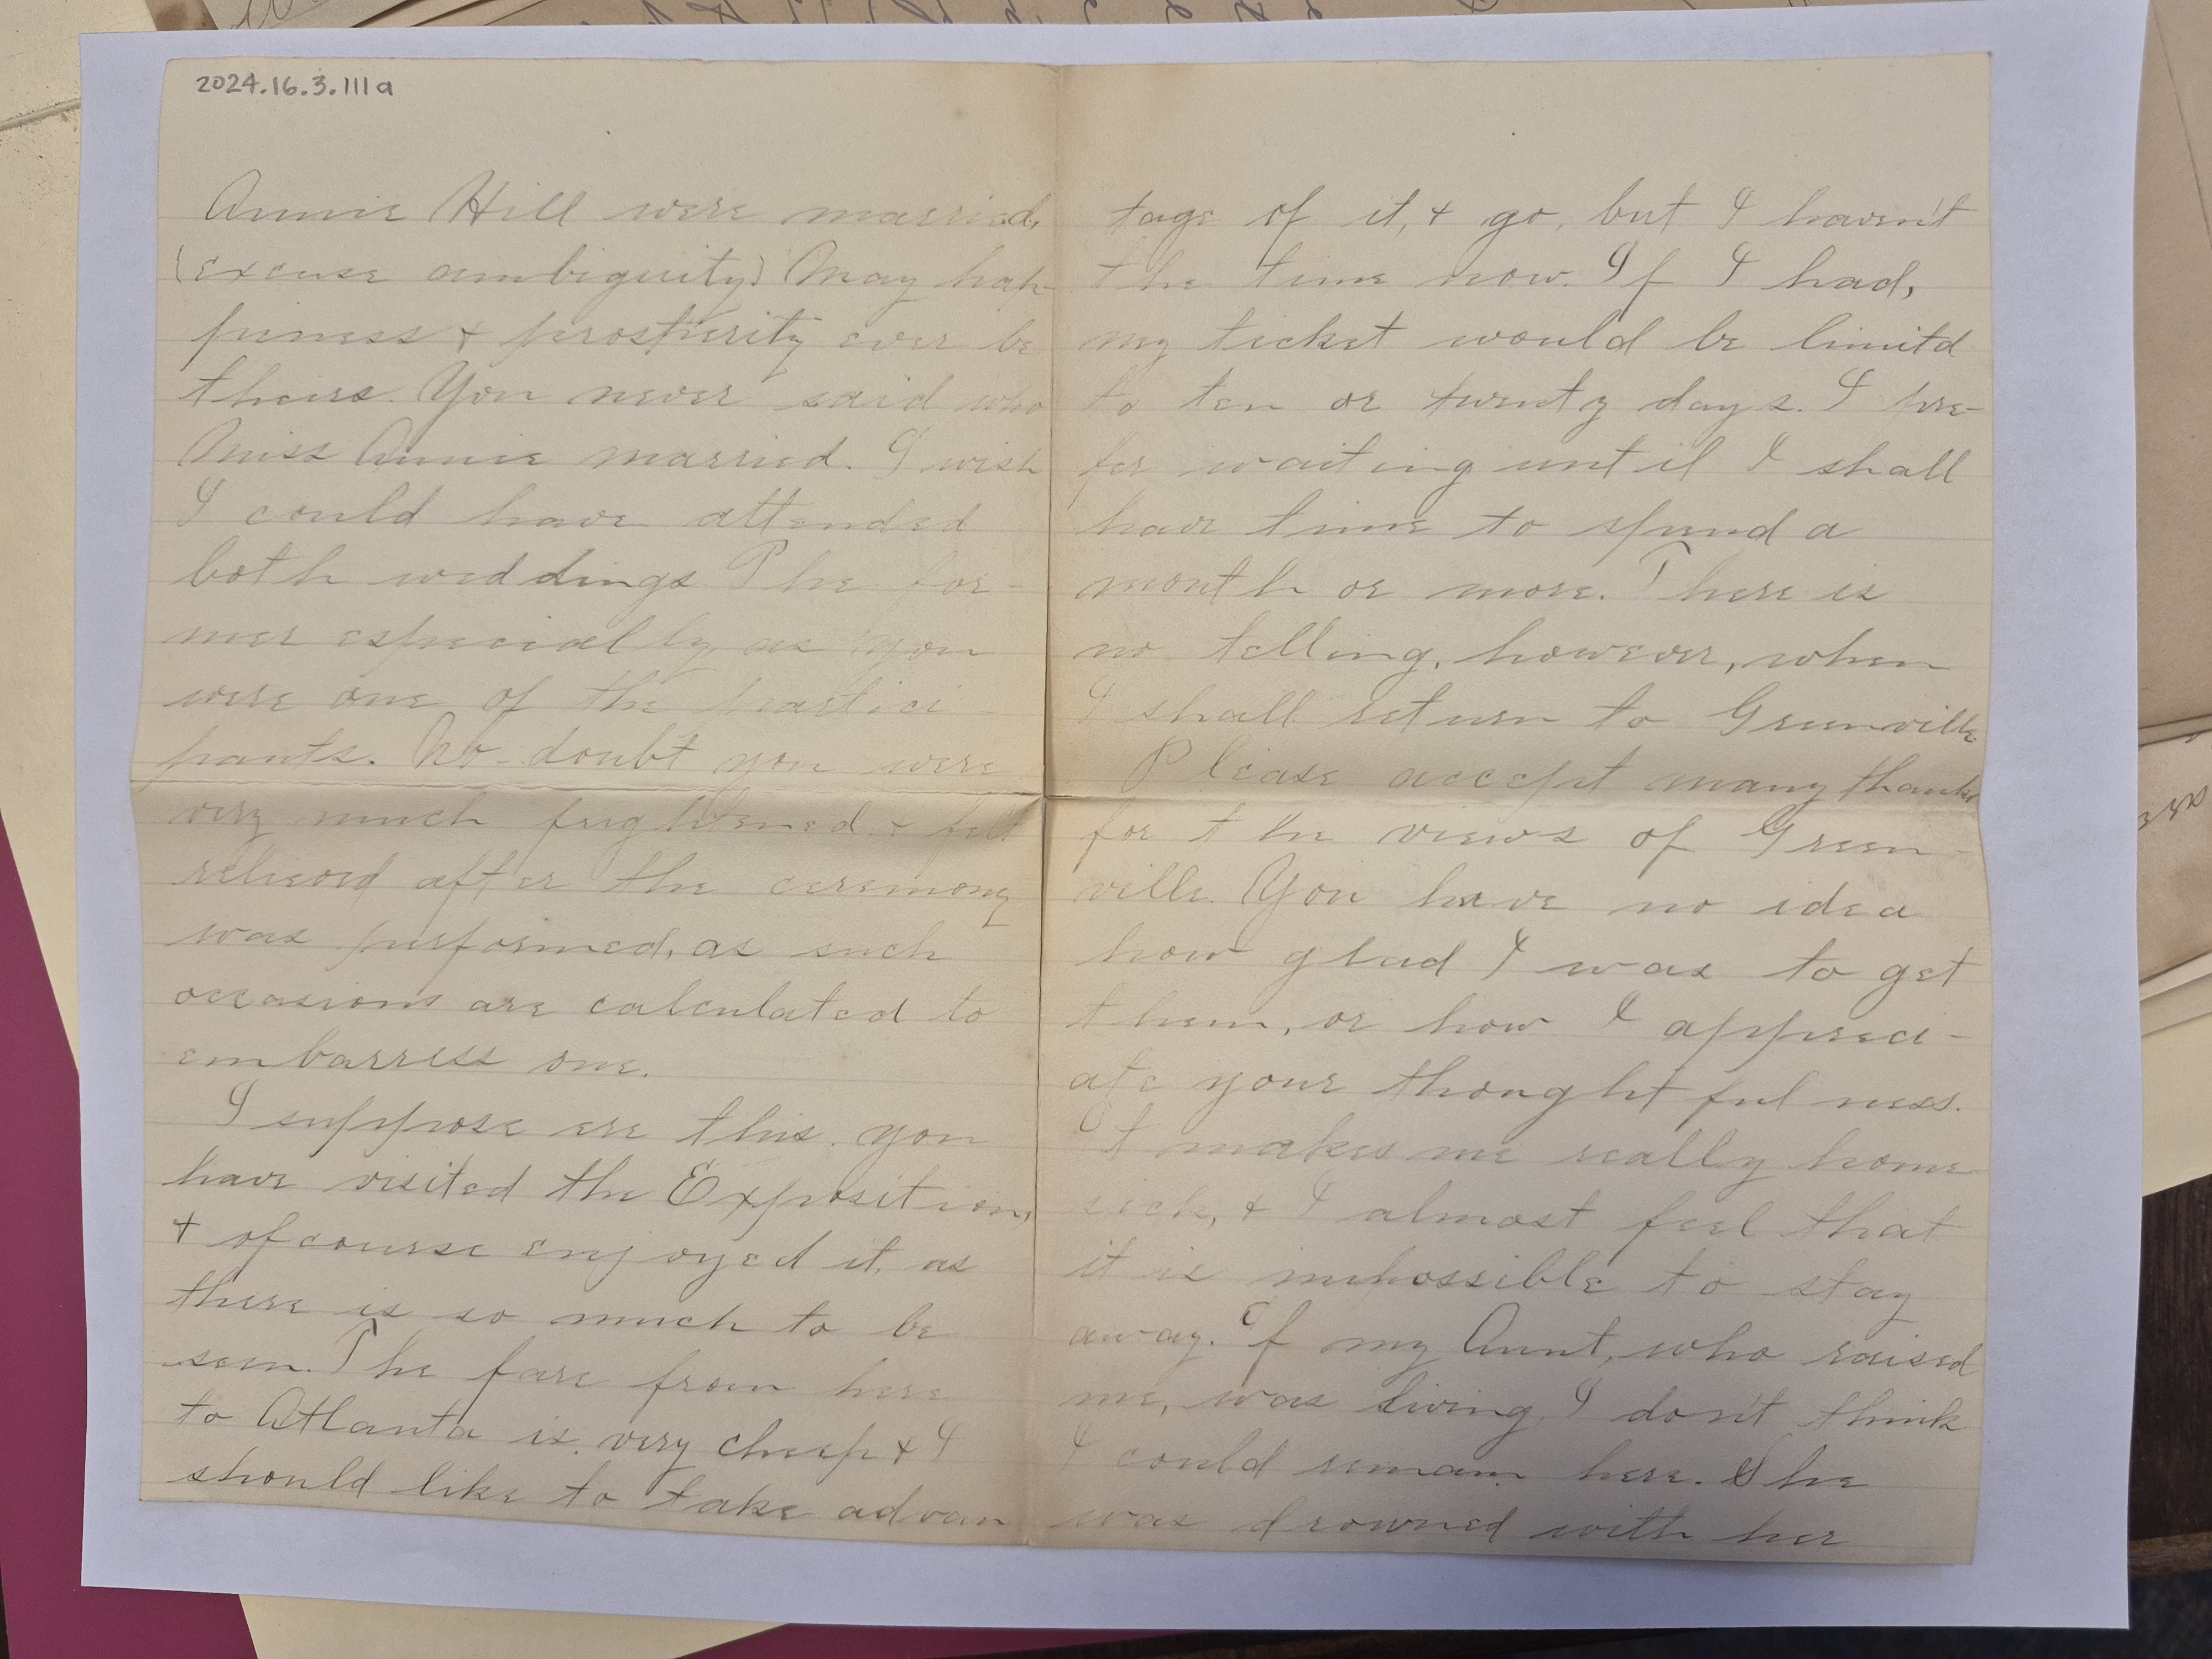 2024.16.3.111a
Annie Hill were married,
(excuse ambiguity) May hap-
piness & prosperity ever be
theirs. You never said who
Miss Annie married. I wish
I could have attended
both weddings The for-
mer especially, as you
were one of the partici
pants. No doubt you were
very much frightened & felt
relieved after the ceremony
was performed, as such
occasions are calculated to
embarress one.
I suppose ere this you
have visited the Exposition,
& of course enjoyed it, as
there is so much to be
seen. The fare from here
to Atlanta is very cheap & I
should like to take advan
tage of it, & go, but I haven't
the time now. If I had,
my ticket would be limitd
to ten or twenty days. I pre-
fer waiting until I shall
have time to spend a
month or more. There is
no telling, however, when
I shall return to Greenville
Please accept many thanks
for the views of Green-
ville. You have no idea
how glad I was to get
them, or how I appreci-
ate your thoughtfulness.
It makes me really home
sick, & I almost feel that
it is impossible to stay
away. If my Aunt, who raised
me, was living, I don't think
I could remain here. She
was drowned with her